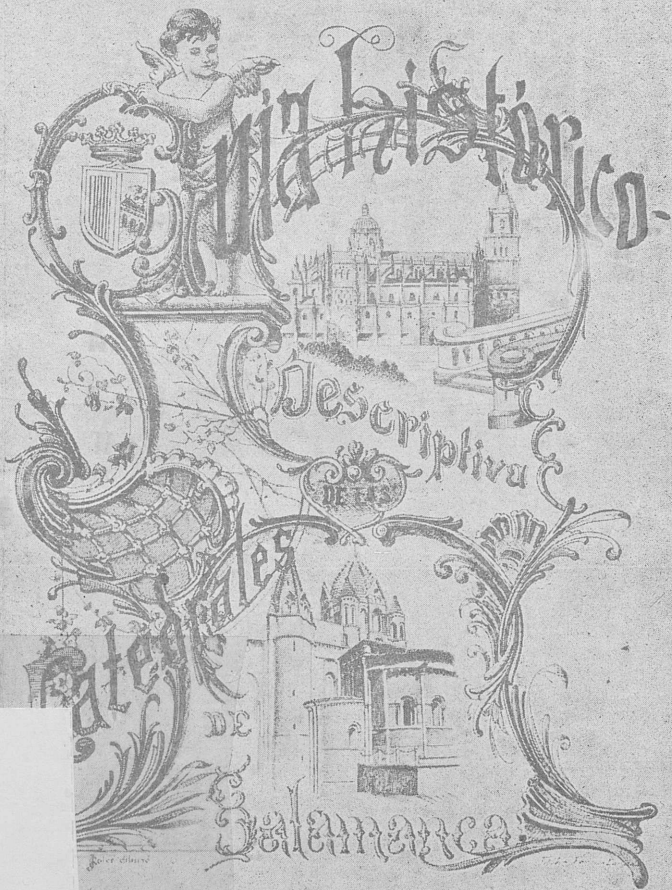 Guia histórico-
Descriptiva
DE LAS
Catedrales
DE
Salamanca.